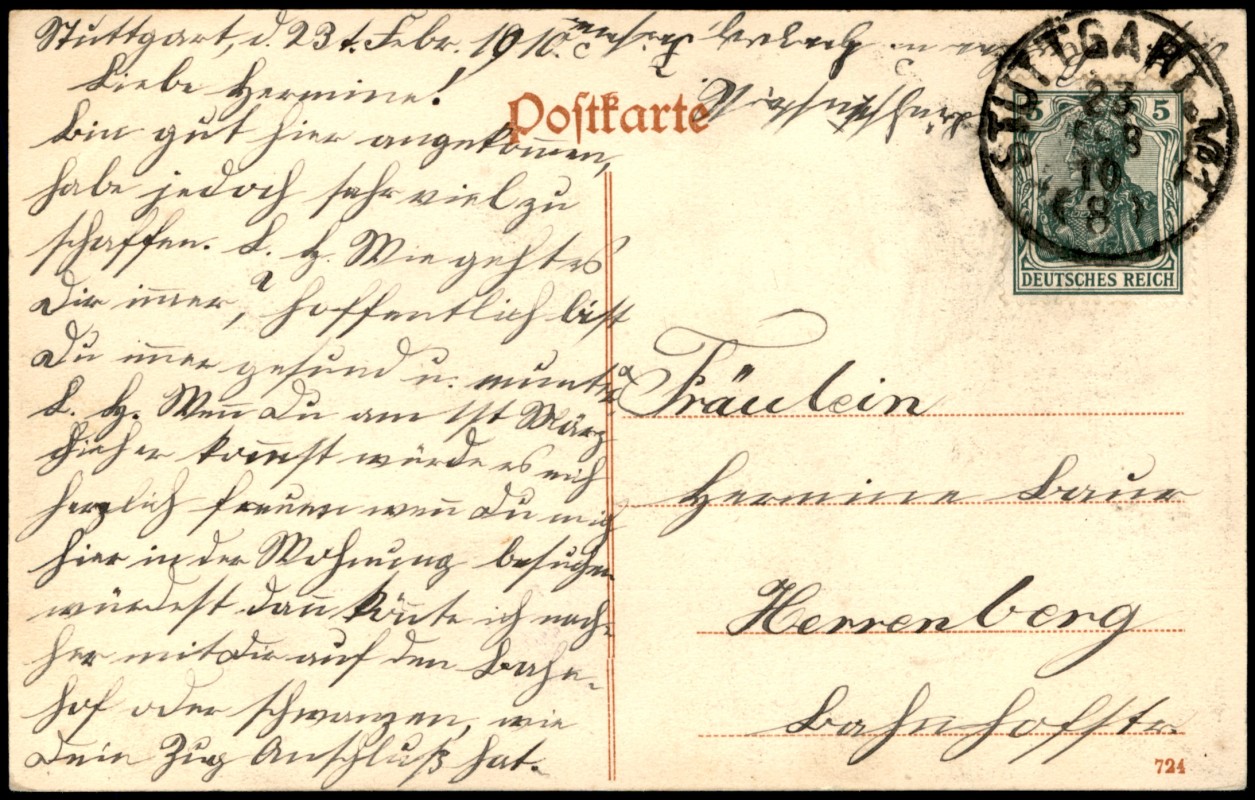 Stuttgart, d. 23t. Febr. 1910.
Liebe Hermine!
Bin gut hier angekom̄en,
habe jedoch sehr viel zu
schaffen. L. H. Wie geht es
Dir im̄er, ? hoffentlich bist
Du im̄er gesund u. munter
L. H. Wen̄ Du am 1st März
hieher kom̄st würde es mich
herzlich freuen wen̄ Du mich
hier in der Wohnung besuchen
würdest dan̄ kön̄te ich nach-
her mit Dir auf den Bahn-
hof oder schwanzen, wie
Dein Zug Anschluß hat.
Postkarte
STUTTGART No 1
23
FEB
10
8
5 5
DEUTSCHES REICH
Fräulein
Hermine Baur
Herrenberg
Bahnhofstr.
724